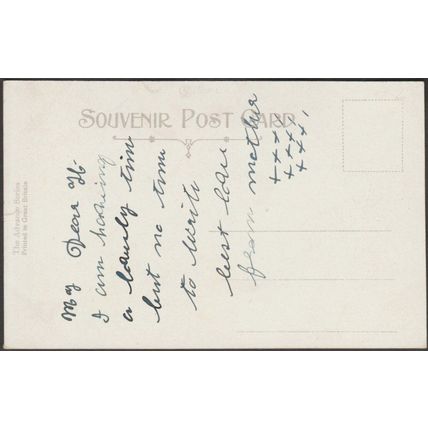 SOUVENIR POST CARD
The Advance Series
Printed in Great Britain
My Dear
I am having
a lovely time
but no time
to write
best love
from mother
++++
++++
+++,